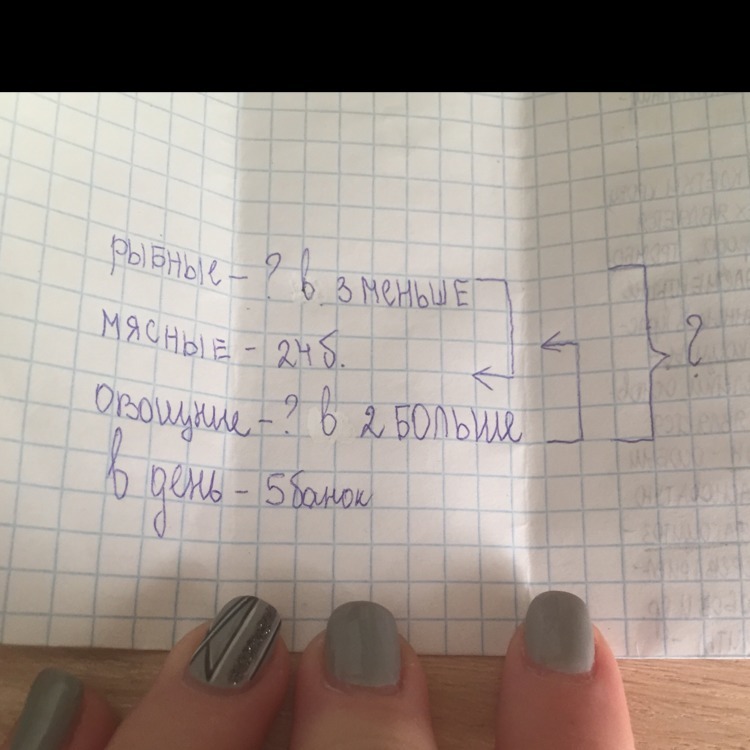 рыбные - ? в 3 меньше
мясные - 24 б.
овощные - ? в 2 больше
?
в день - 5 банок